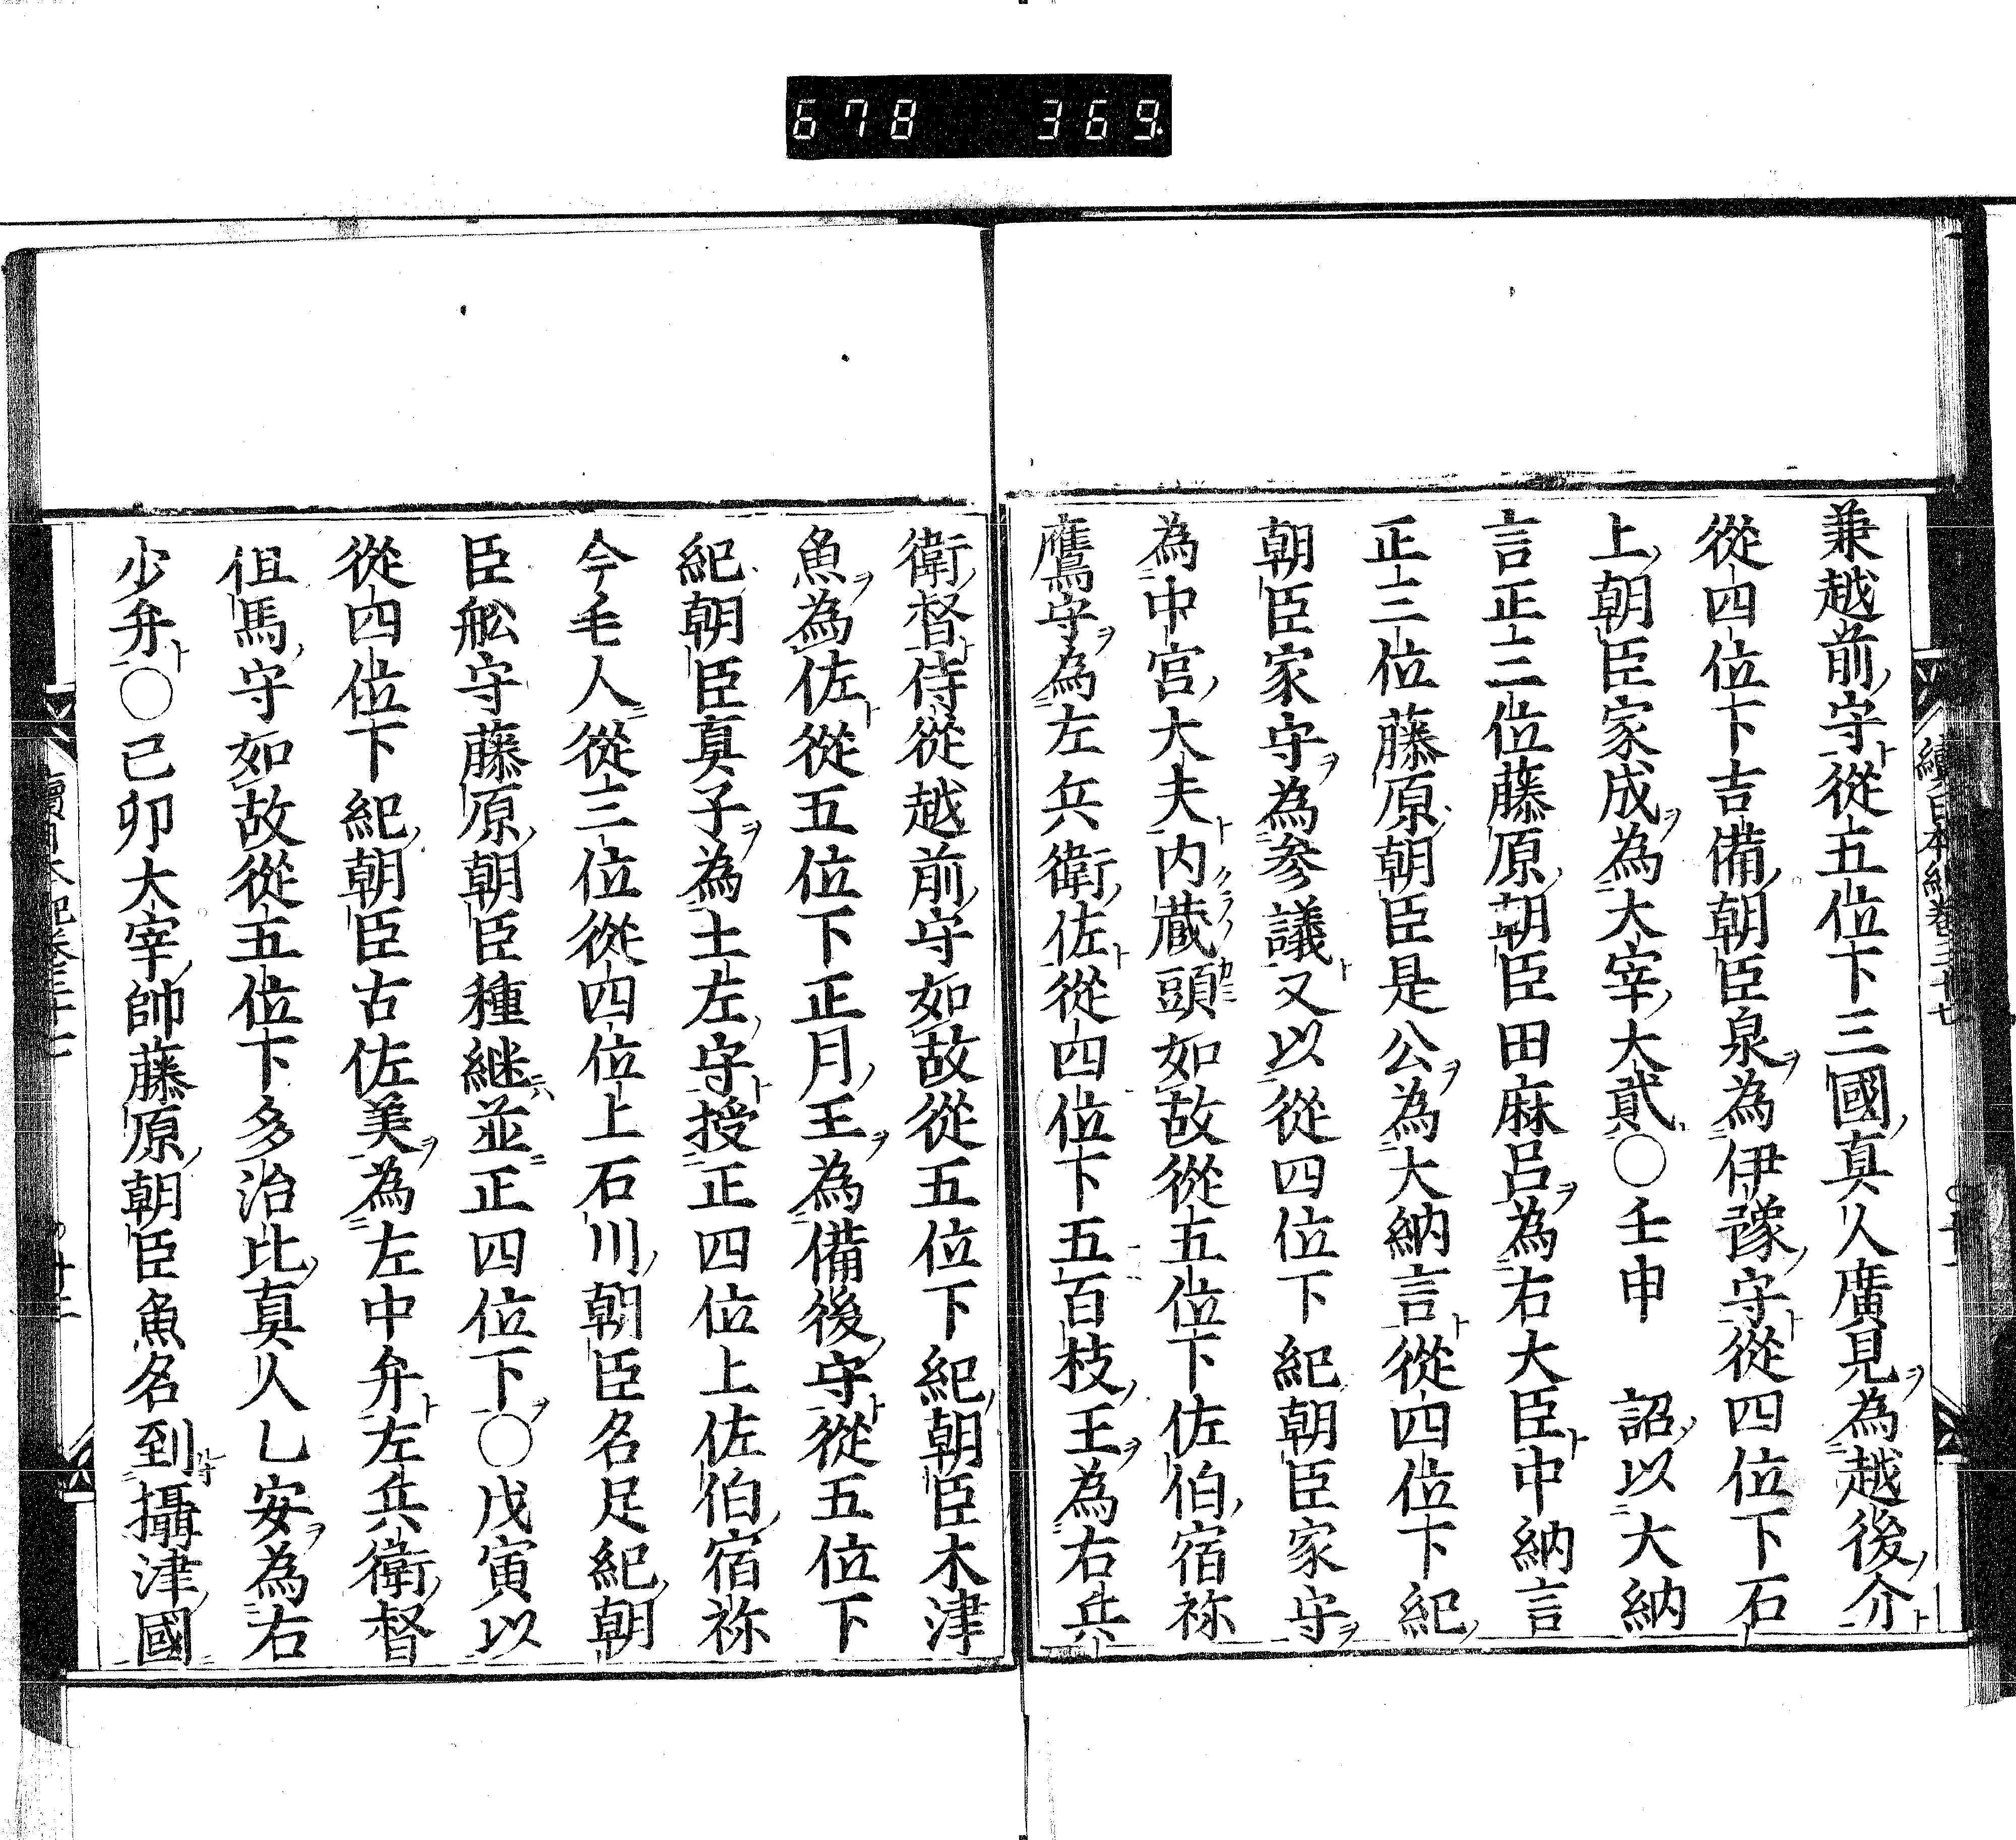 678 369
兼越前守從五位下三國真人廣見為越後介
從四位下吉備朝臣泉為伊豫守從四位下石
上朝臣家成為大宰大貳○壬申 詔以大納
言正三位藤原朝臣田麻呂為右大臣中納言
正三位藤原朝臣是公為大納言從四位下紀
朝臣家守為參議又以從四位下紀朝臣家守
為中宮大夫内蔵頭如故從五位下佐伯宿祢
鷹守為左兵衛佐從四位下五百枝王為右兵
衛督侍從越前守如故從五位下紀朝臣木津
魚為佐從五位下正月王為備後守從五位下
紀朝臣真子為土左守授正四位上佐伯宿祢
今毛人從三位從四位上石川朝臣名足紀朝
臣舩守藤原朝臣種継並正四位下○戊寅以
從四位下紀朝臣古佐美為左中弁左兵衛督
但馬守如故從五位下多治比真人乚安為右
少弁○己卯大宰帥藤原朝臣魚名到攝津國